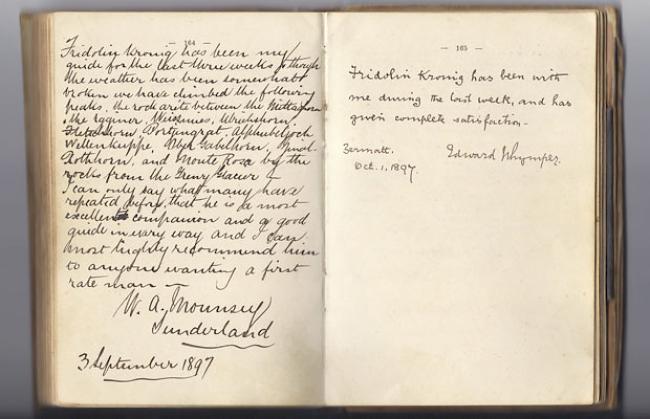 — 164 —
Fridolin Kronig has been my
guide for the last three weeks & though
the weather has been somewhat
broken we have climbed the following
peaks, the rock arête between the Mittaghorn
& the Egginer, Weissmies, Ulrichshorn,
Fletschhorn, Portjengrat, Alphubeljoch
Wellenkuppe, Ober Gabelhorn, Zinal-
Rothhorn, and Monte Rosa by the
rocks from the Grenz Glacier &
I can only say what many have
repeated before, that he is a most
excellent companion and a good
guide in every way and I can
most highly recommend him
to anyone wanting a first
rate man —
W. A. Mounsey
Sunderland
3 September 1897
— 165 —
Fridolin Kronig has been with
me during the last week, and has
given complete satisfaction.
Zermatt. Edward Whymper.
Oct. 1, 1897.